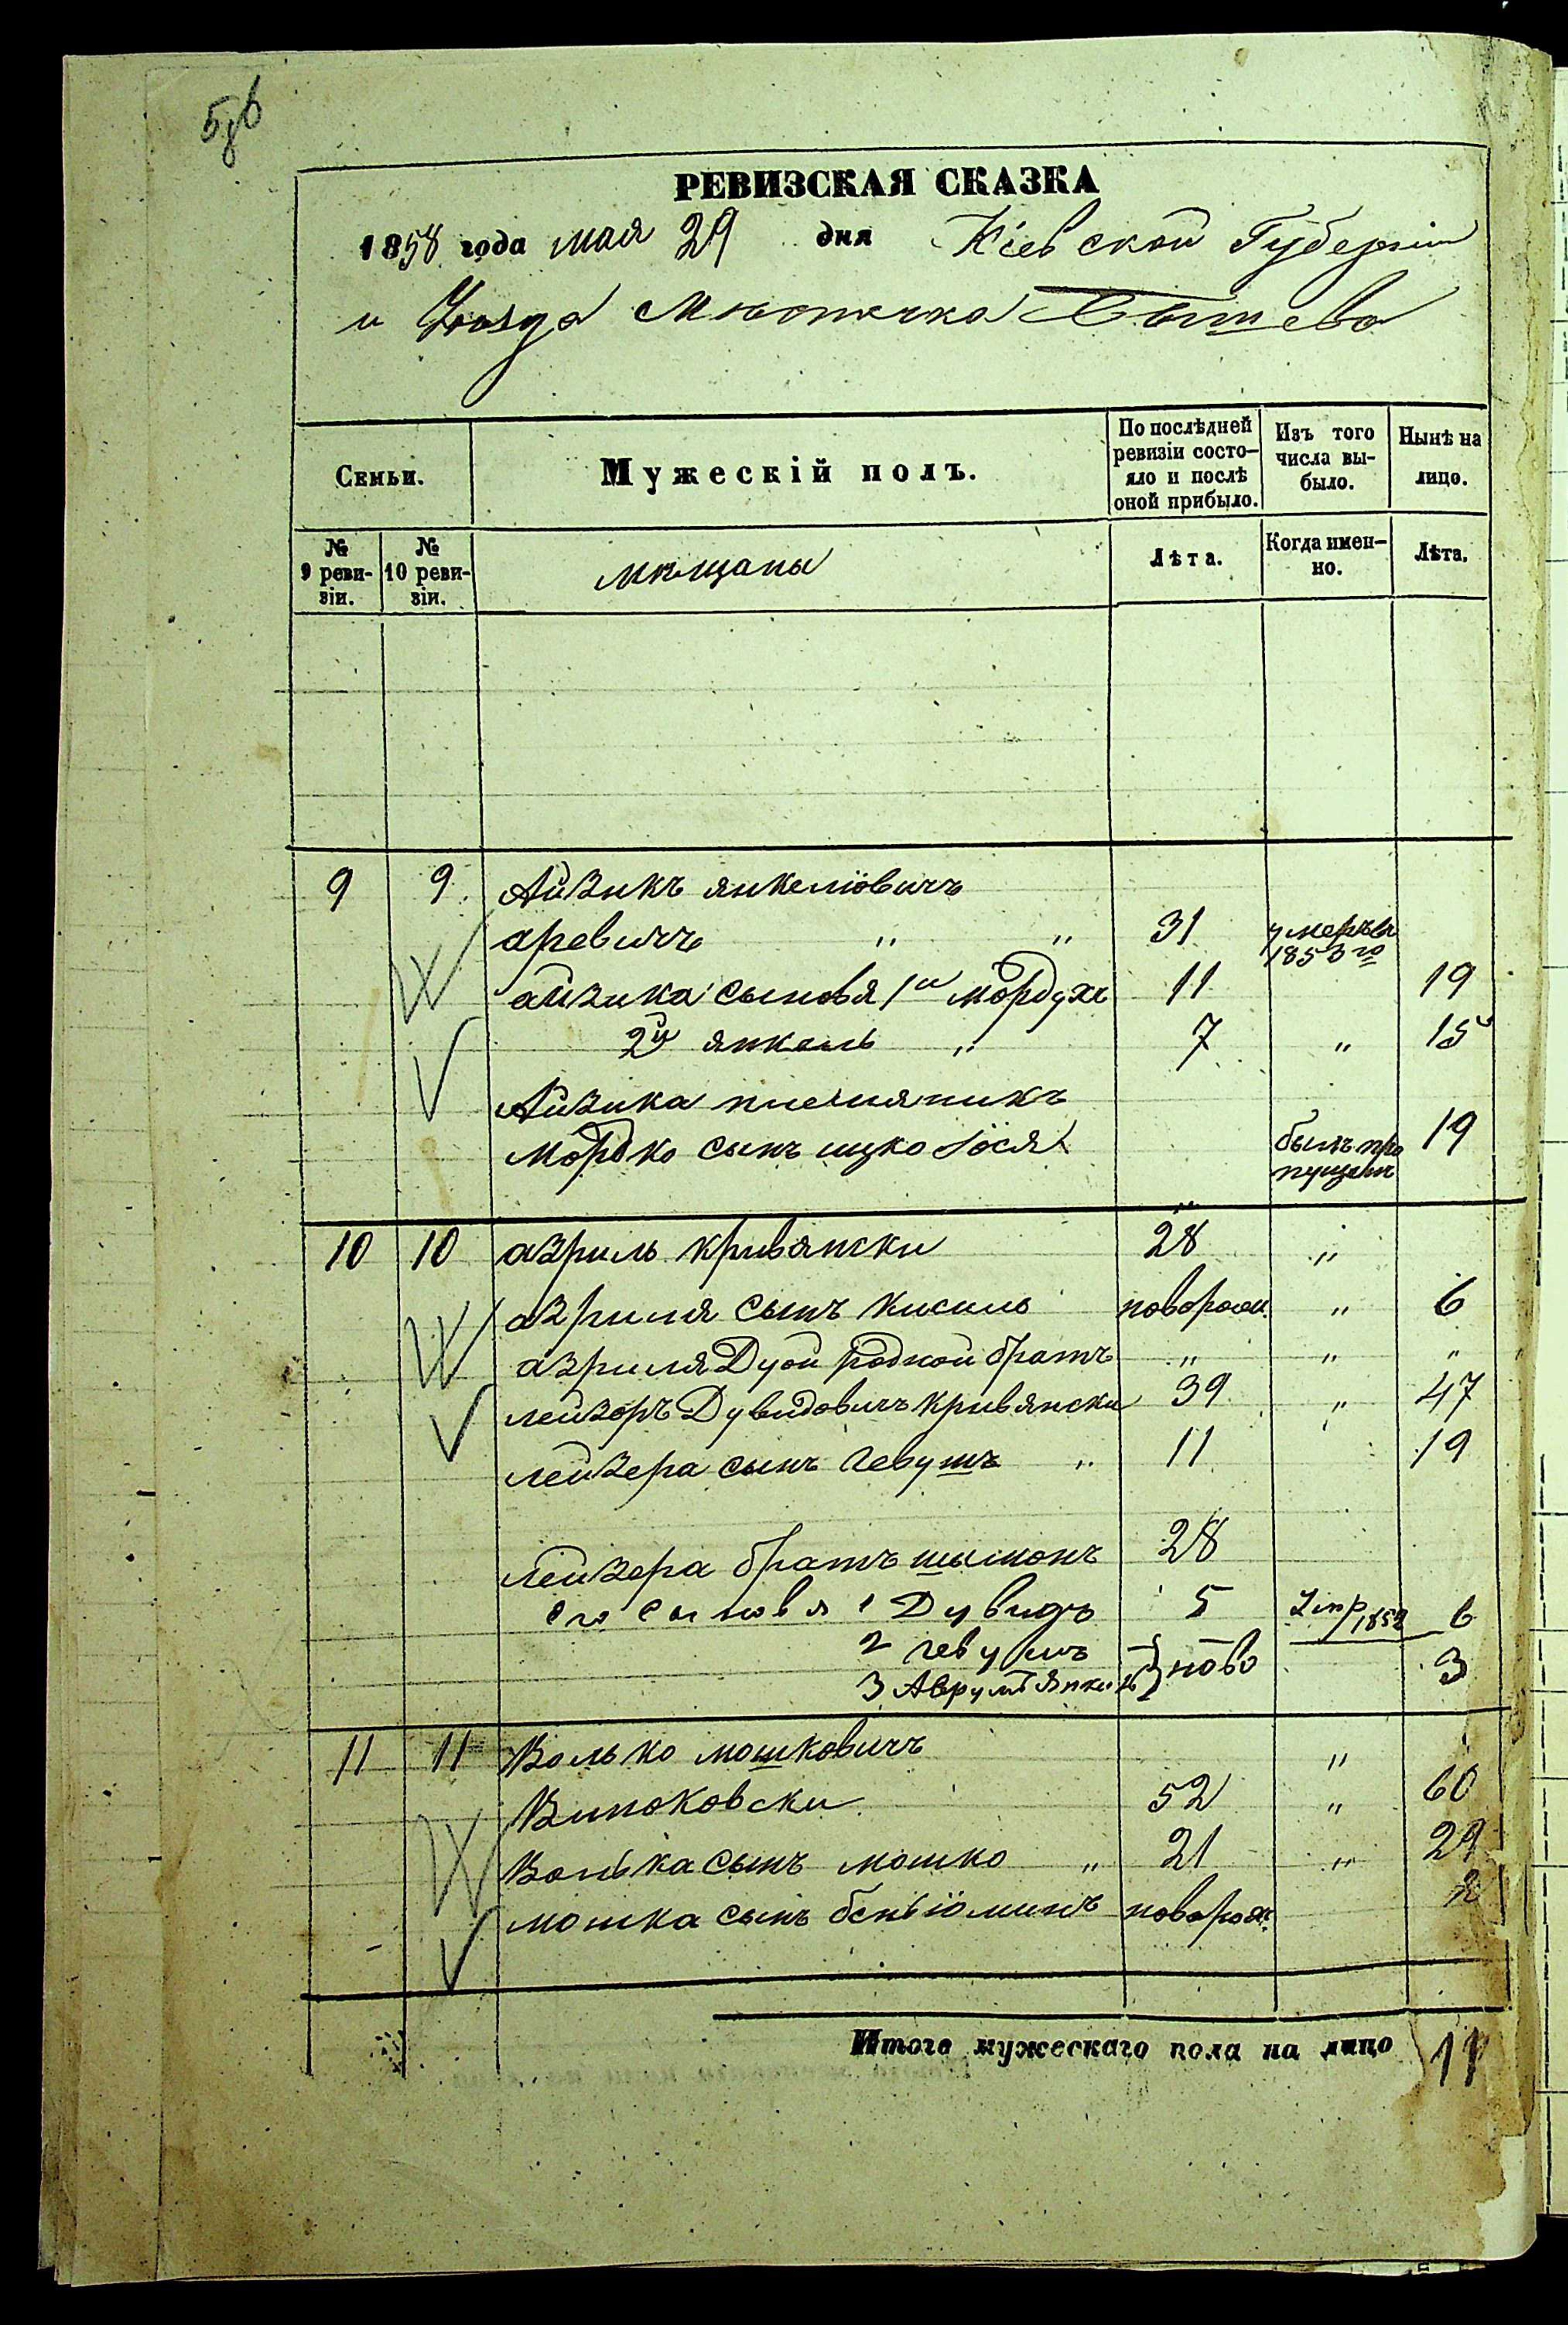 РЕВИЗСКАЯ СКАЗКА
1858 года мая 29 дня Кіевской Губерніи
и Уѣзда Мѣстечка Бышева
Семьи. Мужескій полъ. По послѣдней ревизіи состо- яло и послѣ оной прибыло. Изъ того числа вы- было. Нынѣ на лицо.
№ 9 реви- зіи. № 10 реви- зіи. мѣщаны Лѣта. Когда имен- но. Лѣта.
9 9 Айзикъ янкеліовичъ
аревичъ " " 31 умеръ въ 1853 го
айзика сыновя 1й мордухъ 11 19
2й янкель " 7 " 15
Айзика племяникъ
Мордко сынъ ицко Іося былъ про пущенъ 19
10 10 азриль кривянски 28 "
азриля сынъ кисиль новорож. " 6
азриля Дуой родной братъ " " "
лейзоръ Дувидовичъ кривянски 39 " 47
лейзера сынъ гевушъ " 11 19
лейзера братъ шымонъ 28
его сыновя 1 Дувидъ 5 1852 6
2 гевушъ
3 Аврумъ Янкель ново 3
11 11 Волько мошковичъ "
Виноковски 52 " 60
Волька сынъ мошко " 21 " 29
мошка сынъ беньіоминъ новорож. 2
Итого мужескаго пола на лицо 11